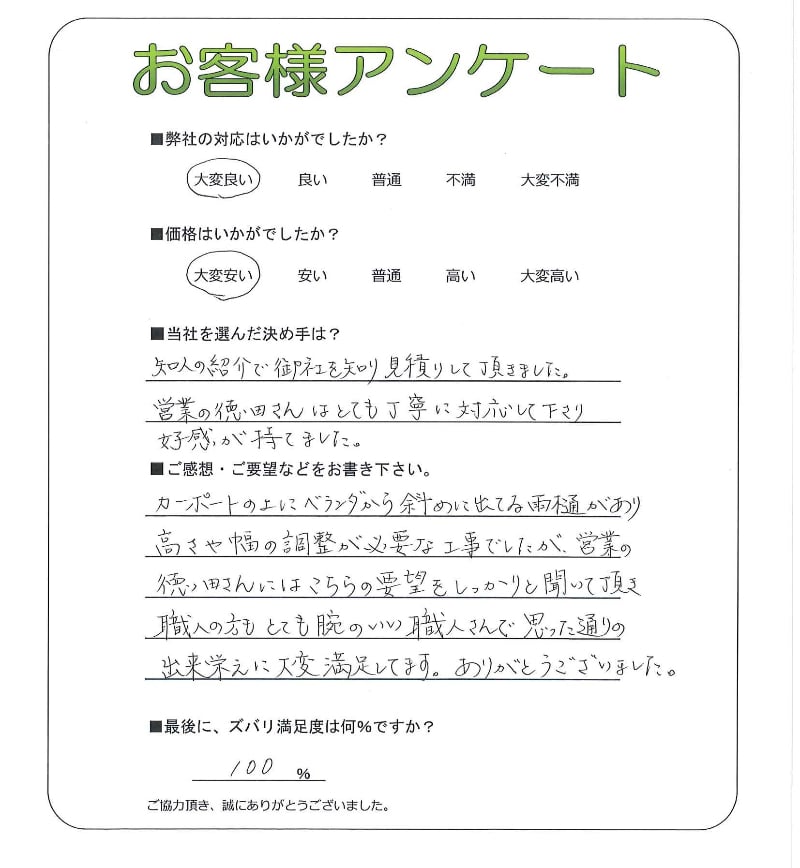 お客様アンケート
■弊社の対応はいかがでしたか？
大変良い 良い 普通 不満 大変不満
■価格はいかがでしたか？
大変安い 安い 普通 高い 大変高い
■当社を選んだ決め手は？
知人の紹介で御社を知り見積りして頂きました。
営業の徳田さんはとても丁寧に対応して下さり
好感が持てました。
■ご感想・ご要望などをお書き下さい。
カーポートの上にベランダから斜めに出てる雨樋があり
高さや幅の調整が必要な工事でしたが、営業の
徳田さんにはこちらの要望をしっかりと聞いて頂き
職人の方もとても腕のいい職人さんで思った通りの
出来栄えに大変満足してます。ありがとうございました。
■最後に、ズバリ満足度は何%ですか？
100 %
ご協力頂き、誠にありがとうございました。